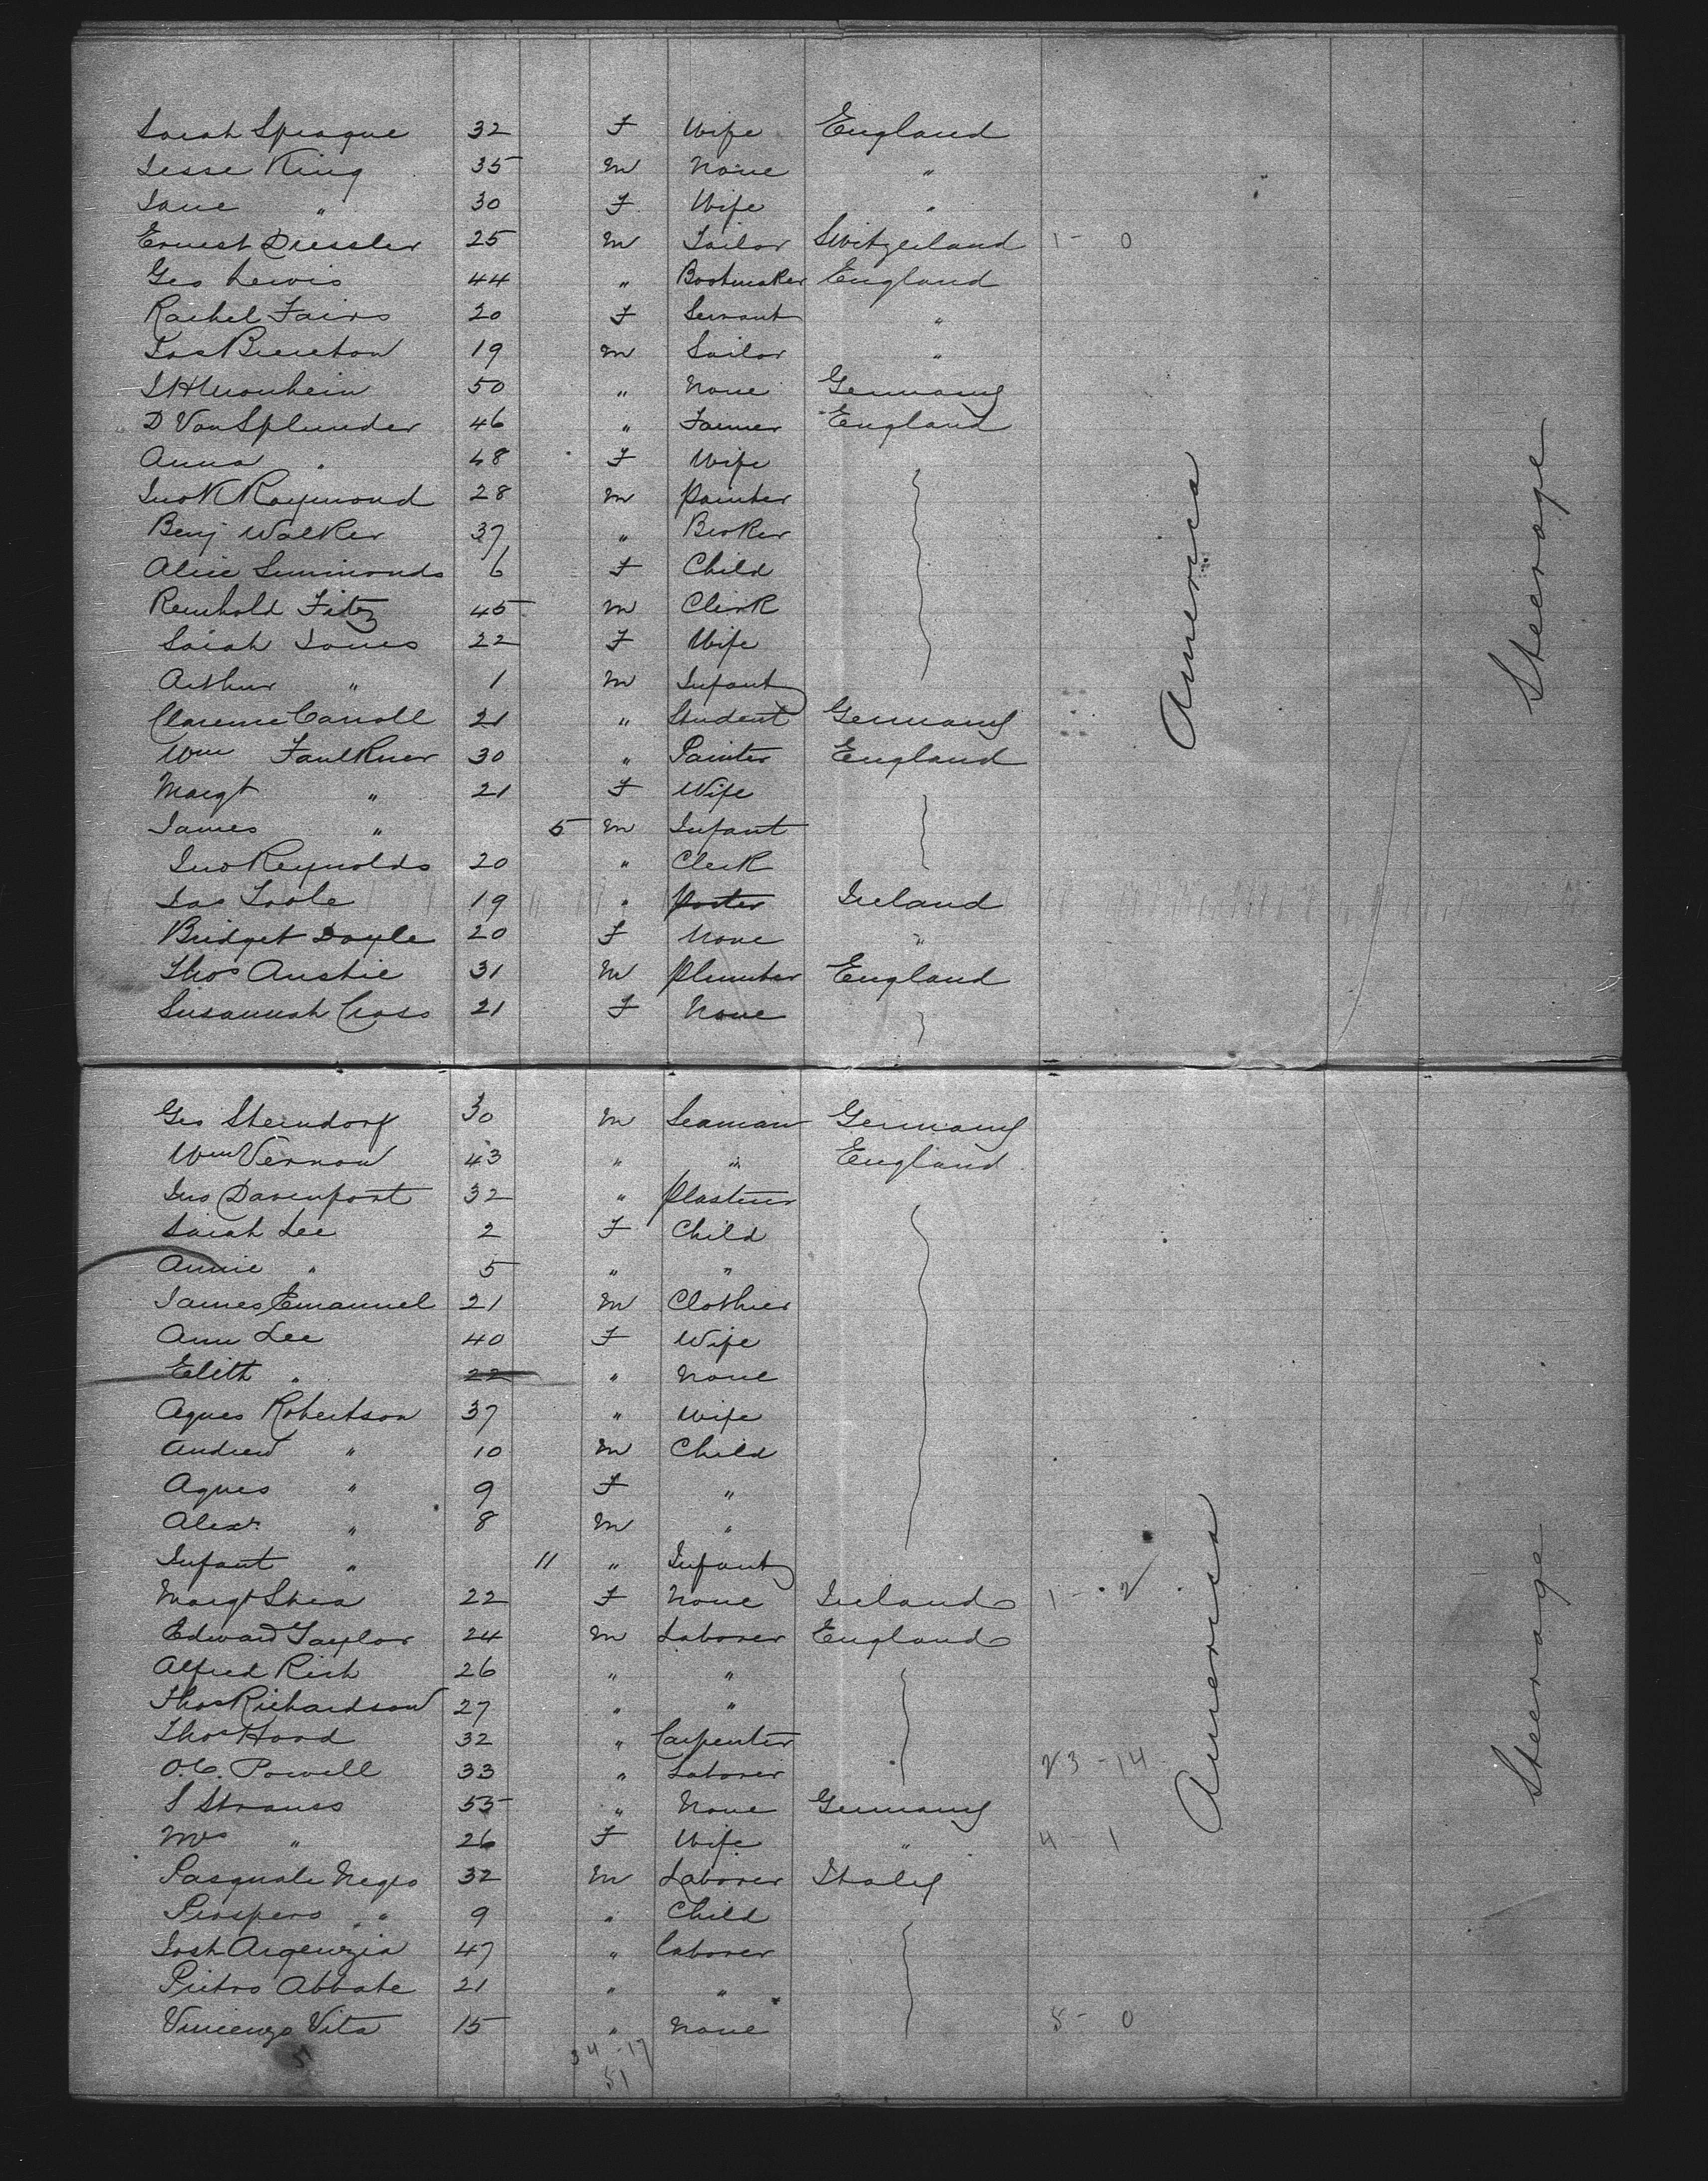 Sarah Sprague 32 F Wife England
Jesse King 35 M None "
Jane " 30 F Wife "
Ernest Dressler 25 M Tailor Switzerland 1 - 0
Geo Lewis 44 " Bootmaker England
Rachel Fairs 20 F Servant "
Jas Brereton 19 M Sailor "
50 " None Germany
D Van Splunder 46 " Farmer England
Anna " 48 F Wife
Jno K Raymond 28 M Painter
Benj Walker 37 " Broker
Alice Simmonds 6 F Child
Reinhold Fitz 45 M Clerk
Sarah Jones 22 F Wife
Arthur " 1 M Infant
Clarence Carroll 21 " Student Germany
Wm Faulkner 30 " Painter England
Margt " 21 F Wife
James " 5 M Infant
Jno Reynolds 20 " Clerk
Jas Toole 19 " Porter Ireland
Bridget Doyle 20 F None "
Thos Anstie 31 M Plumber England
Susannah Cross 21 F None
America
Steerage
Geo Sterndorf 30 M Seaman Germany
Wm Vernon 43 " " England
Jno Davenport 32 " Plasterer
Sarah Lee 2 F Child
Annie " 5 " "
James Emanuel 21 M Clothier
Ann Lee 40 F Wife
Edith " 22 " None
Agnes Robertson 37 " Wife
Andrew " 10 M Child
Agnes " 9 F "
Alexr " 8 M "
Infant " 11 " Infant
Margt Shea 22 F None Ireland 1 - 2
Edward Taylor 24 M Laborer England
Alfred Rich 26 " "
Thos Richardson 27 " "
Thos Hood 32 " Carpenter
O.C. Powell 33 " Laborer 23 - 14
S Strauss 53 " None Germany
Mrs " 26 F Wife " 4 - 1
Pasquale Negro 32 M Laborer Italy
Prospero " 9 " Child
Josh Argenzia 47 " Laborer
Pietro Abbate 21 " "
Vincenzo Vita 15 " None 5 - 0
34 - 17
51
America
Steerage